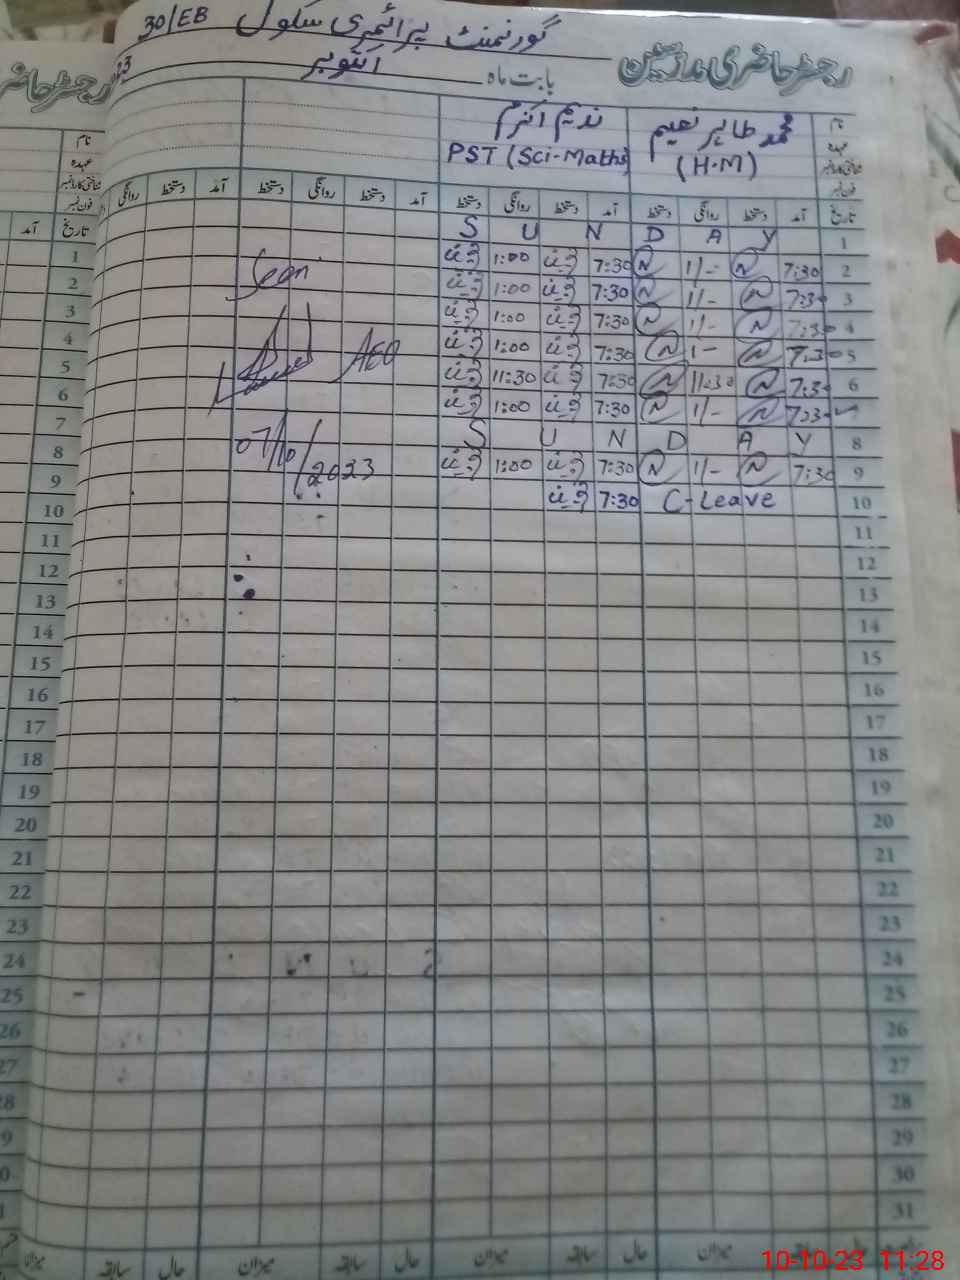 گورنمنٹ پرائمری سکول 30/EB
رجسٹر حاضری مدرسین بابت ماہ اکتوبر 23
رجسٹر حاضر
نام محمد طاہر نعیم ندیم اکرم
عہدہ (H.M) PST (Sci-Maths)
شناختی کارڈ نمبر
فون نمبر
تاریخ آمد دستخط روانگی دستخط آمد دستخط روانگی دستخط آمد دستخط روانگی دستخط آمد دستخط روانگی
1 S U N D A Y
2 7:30 1/- 7:30 1:00
3 7:30 1/- 7:30 1:00
4 7:30 1/- 7:30 1:00
5 7:30 1- 7:30 1:00
6 7:30 11:30 7:30 11:30
7 7:30 1/- 7:30 1:00
8 S U N D A Y
9 7:30 1/- 7:30 1:00
10 C-Leave 7:30
11
12
13
14
15
16
17
18
19
20
21
22
23
24
25
26
27
28
29
30
31
Seen
AEO
07/10/2023
سابقہ حال میزان سابقہ حال میزان سابقہ حال
نام
عہدہ
شناختی کارڈ نمبر
فون نمبر
تاریخ آمد
1
2
3
4
5
6
7
8
9
10
11
12
13
14
15
16
17
18
19
20
21
22
23
24
25
26
27
میزان
10-10-23 11:28